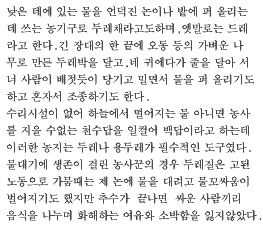 낮은 데에 있는 물을 언덕진 논이나 밭에 퍼 올리는
데 쓰는 농기구로 두레채라고도하며,옛말로는 드레
라고 한다.긴 장대의 한 끝에 오동 등의 가벼운 나
무로 만든 두레박을 달고,네 귀에다가 줄을 달아 서
너 사람이 배젓듯이 당기고 밀면서 물을 퍼 올리기도
하고 혼자서 조종하기도 한다.
수리시설이 없어 하늘에서 떨어지는 물 아니면 농사
를 지을 수없는 천수답을 일컬어 백답이라고 하는데
이러한 농지는 두레나 용두레가 필수적인 도구였다.
물대기에 생존이 걸린 농사꾼의 경우 두레질은 고된
노동으로 가뭄때는 제 논에 물을 대려고 물꼬싸움이
벌어지기도 했지만 추수가 끝나면 싸운 사람끼리
음식을 나누며 화해하는 여유와 소박함을 잃지않았다.